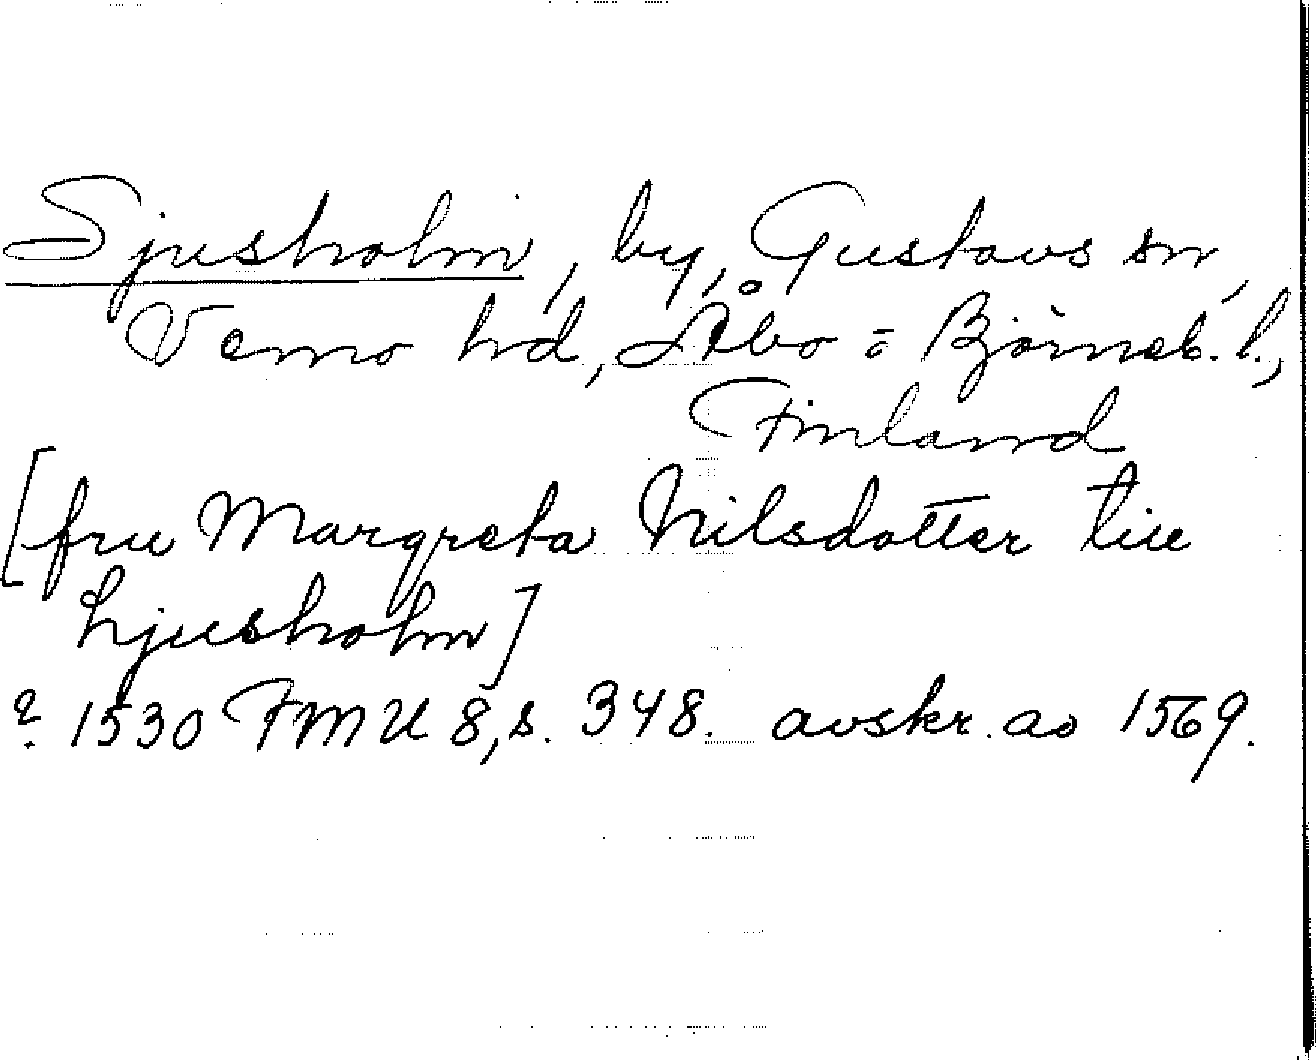 Sjusholm, by, Gustavs sn,
Vemo hd, Åbo = Björneb. l.,
Finland
[fru Margreta Nilsdotter till
Ljusholm]
? 1530 FMU 8, s. 348. avskr. ao 1569.